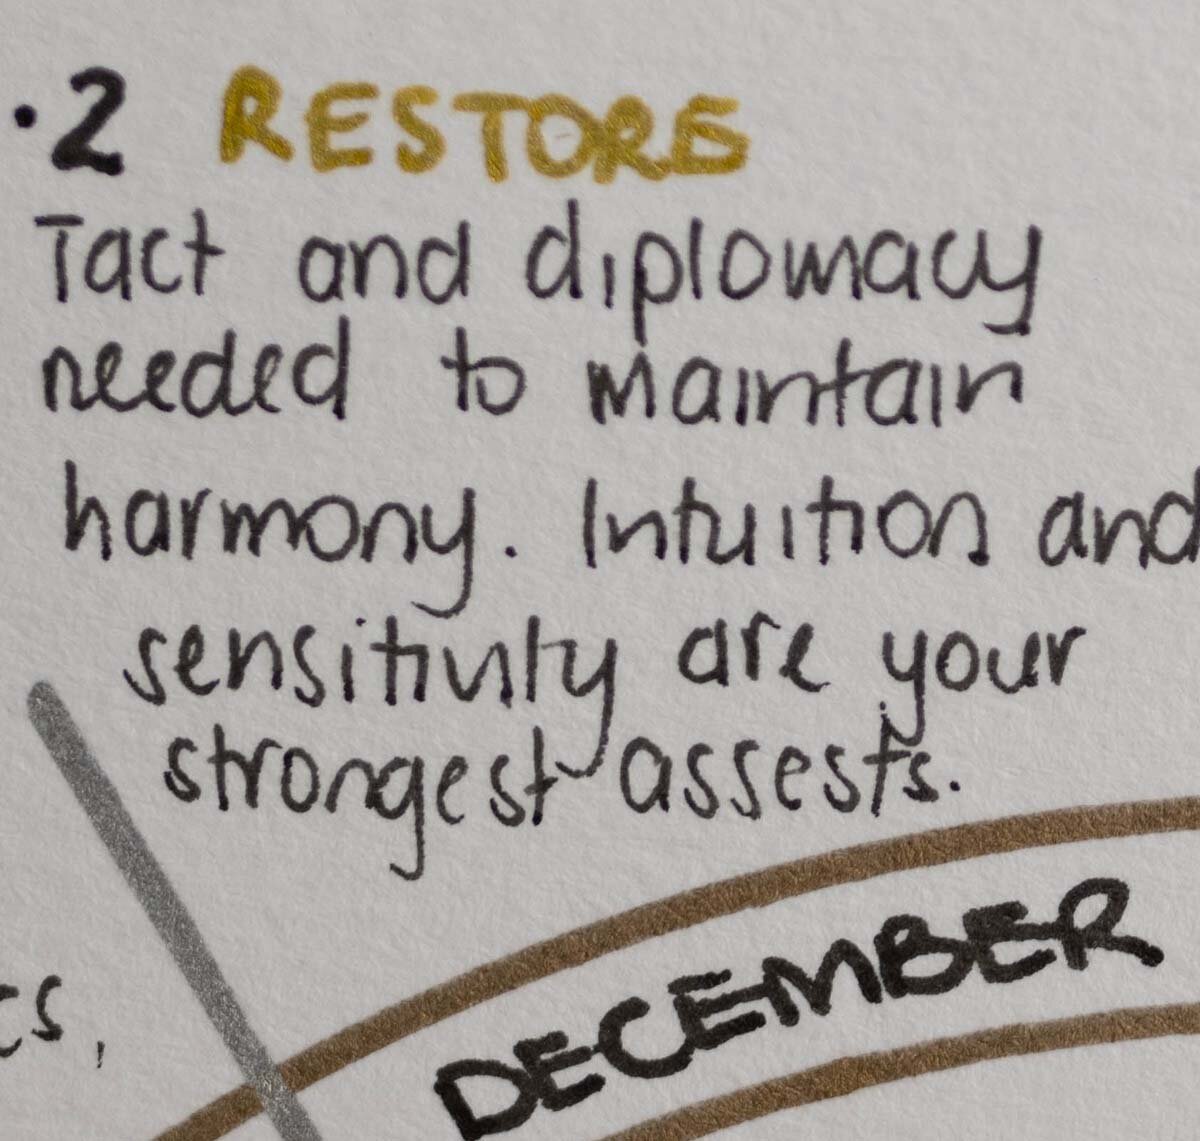 ·2 RESTORE
Tact and diplomacy
needed to maintain
harmony. Intuition and
sensitivity are your
strongest assests.
DECEMBER